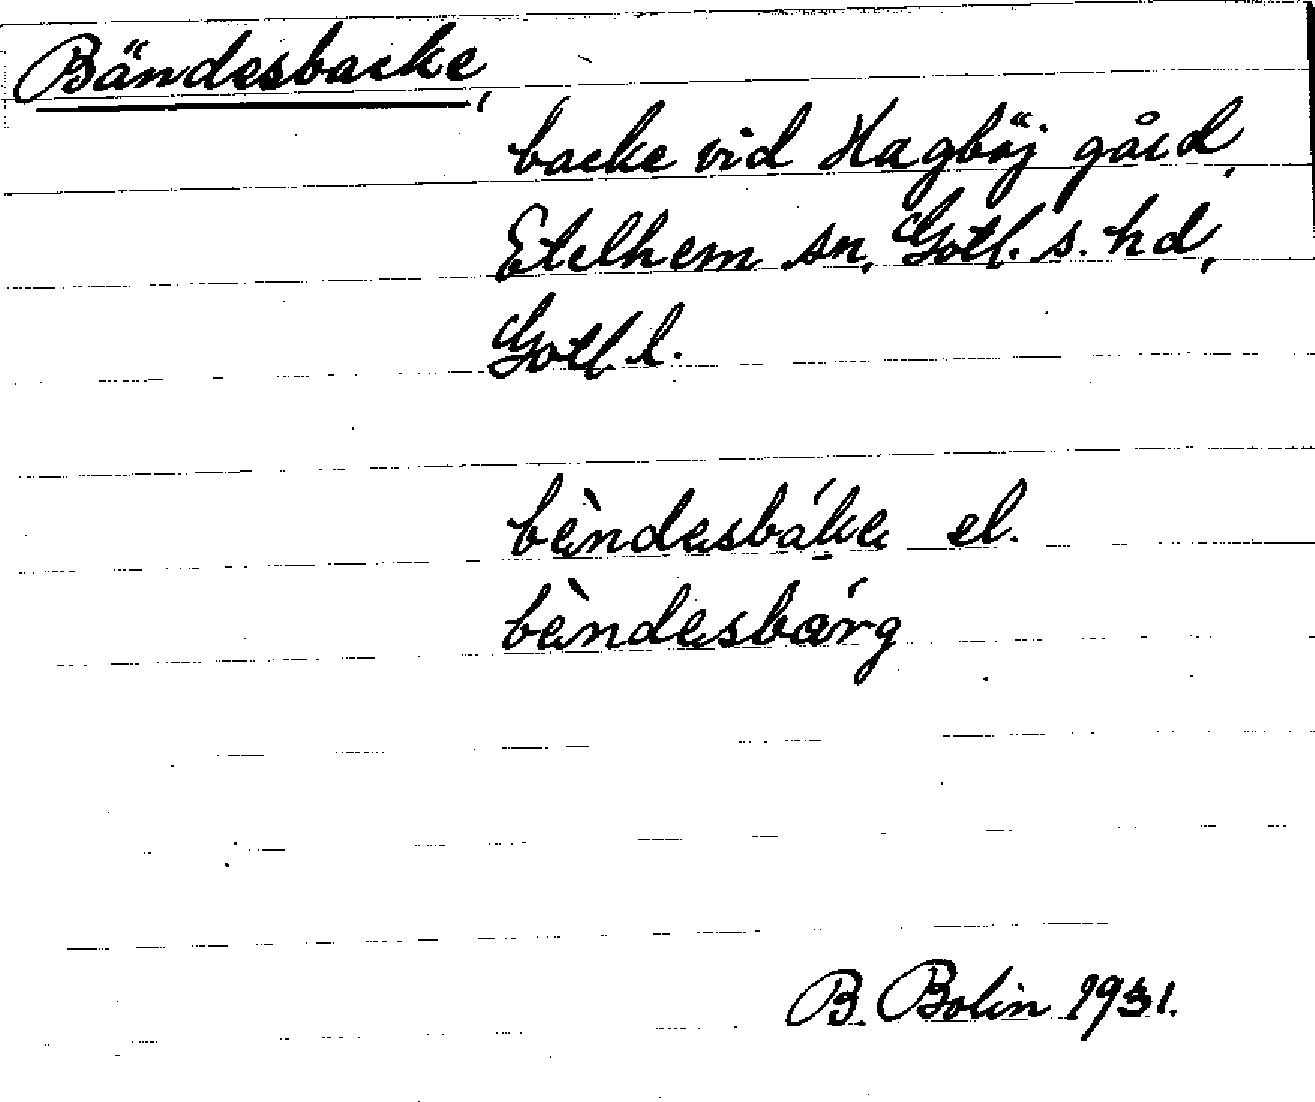 Bändesbacke,
backe vid Hagböj gård,
Etelhem sn, Gotl. s. hd,
Gotl. l.
bèndesbák̬e el.
bèndesbárg
B. Bolin 1931.